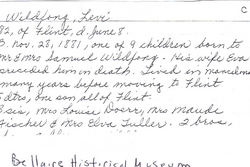 C
Wildfong, Levi
82, of Flint, d. June 8.
B. nov. 28, 1881, one of 9 children born to
Mr & Mrs Samuel Wildfong. His wife Eva
preceded him in death. Lived in Mancelona
many years before moving to Flint
5 dtrs, one son all of Flint.
3 sis, Mrs Louise Doerr, Mrs Maude
Fischer & Mrs Elva Fuller. 2 bros,
Bellaire Historical Museum